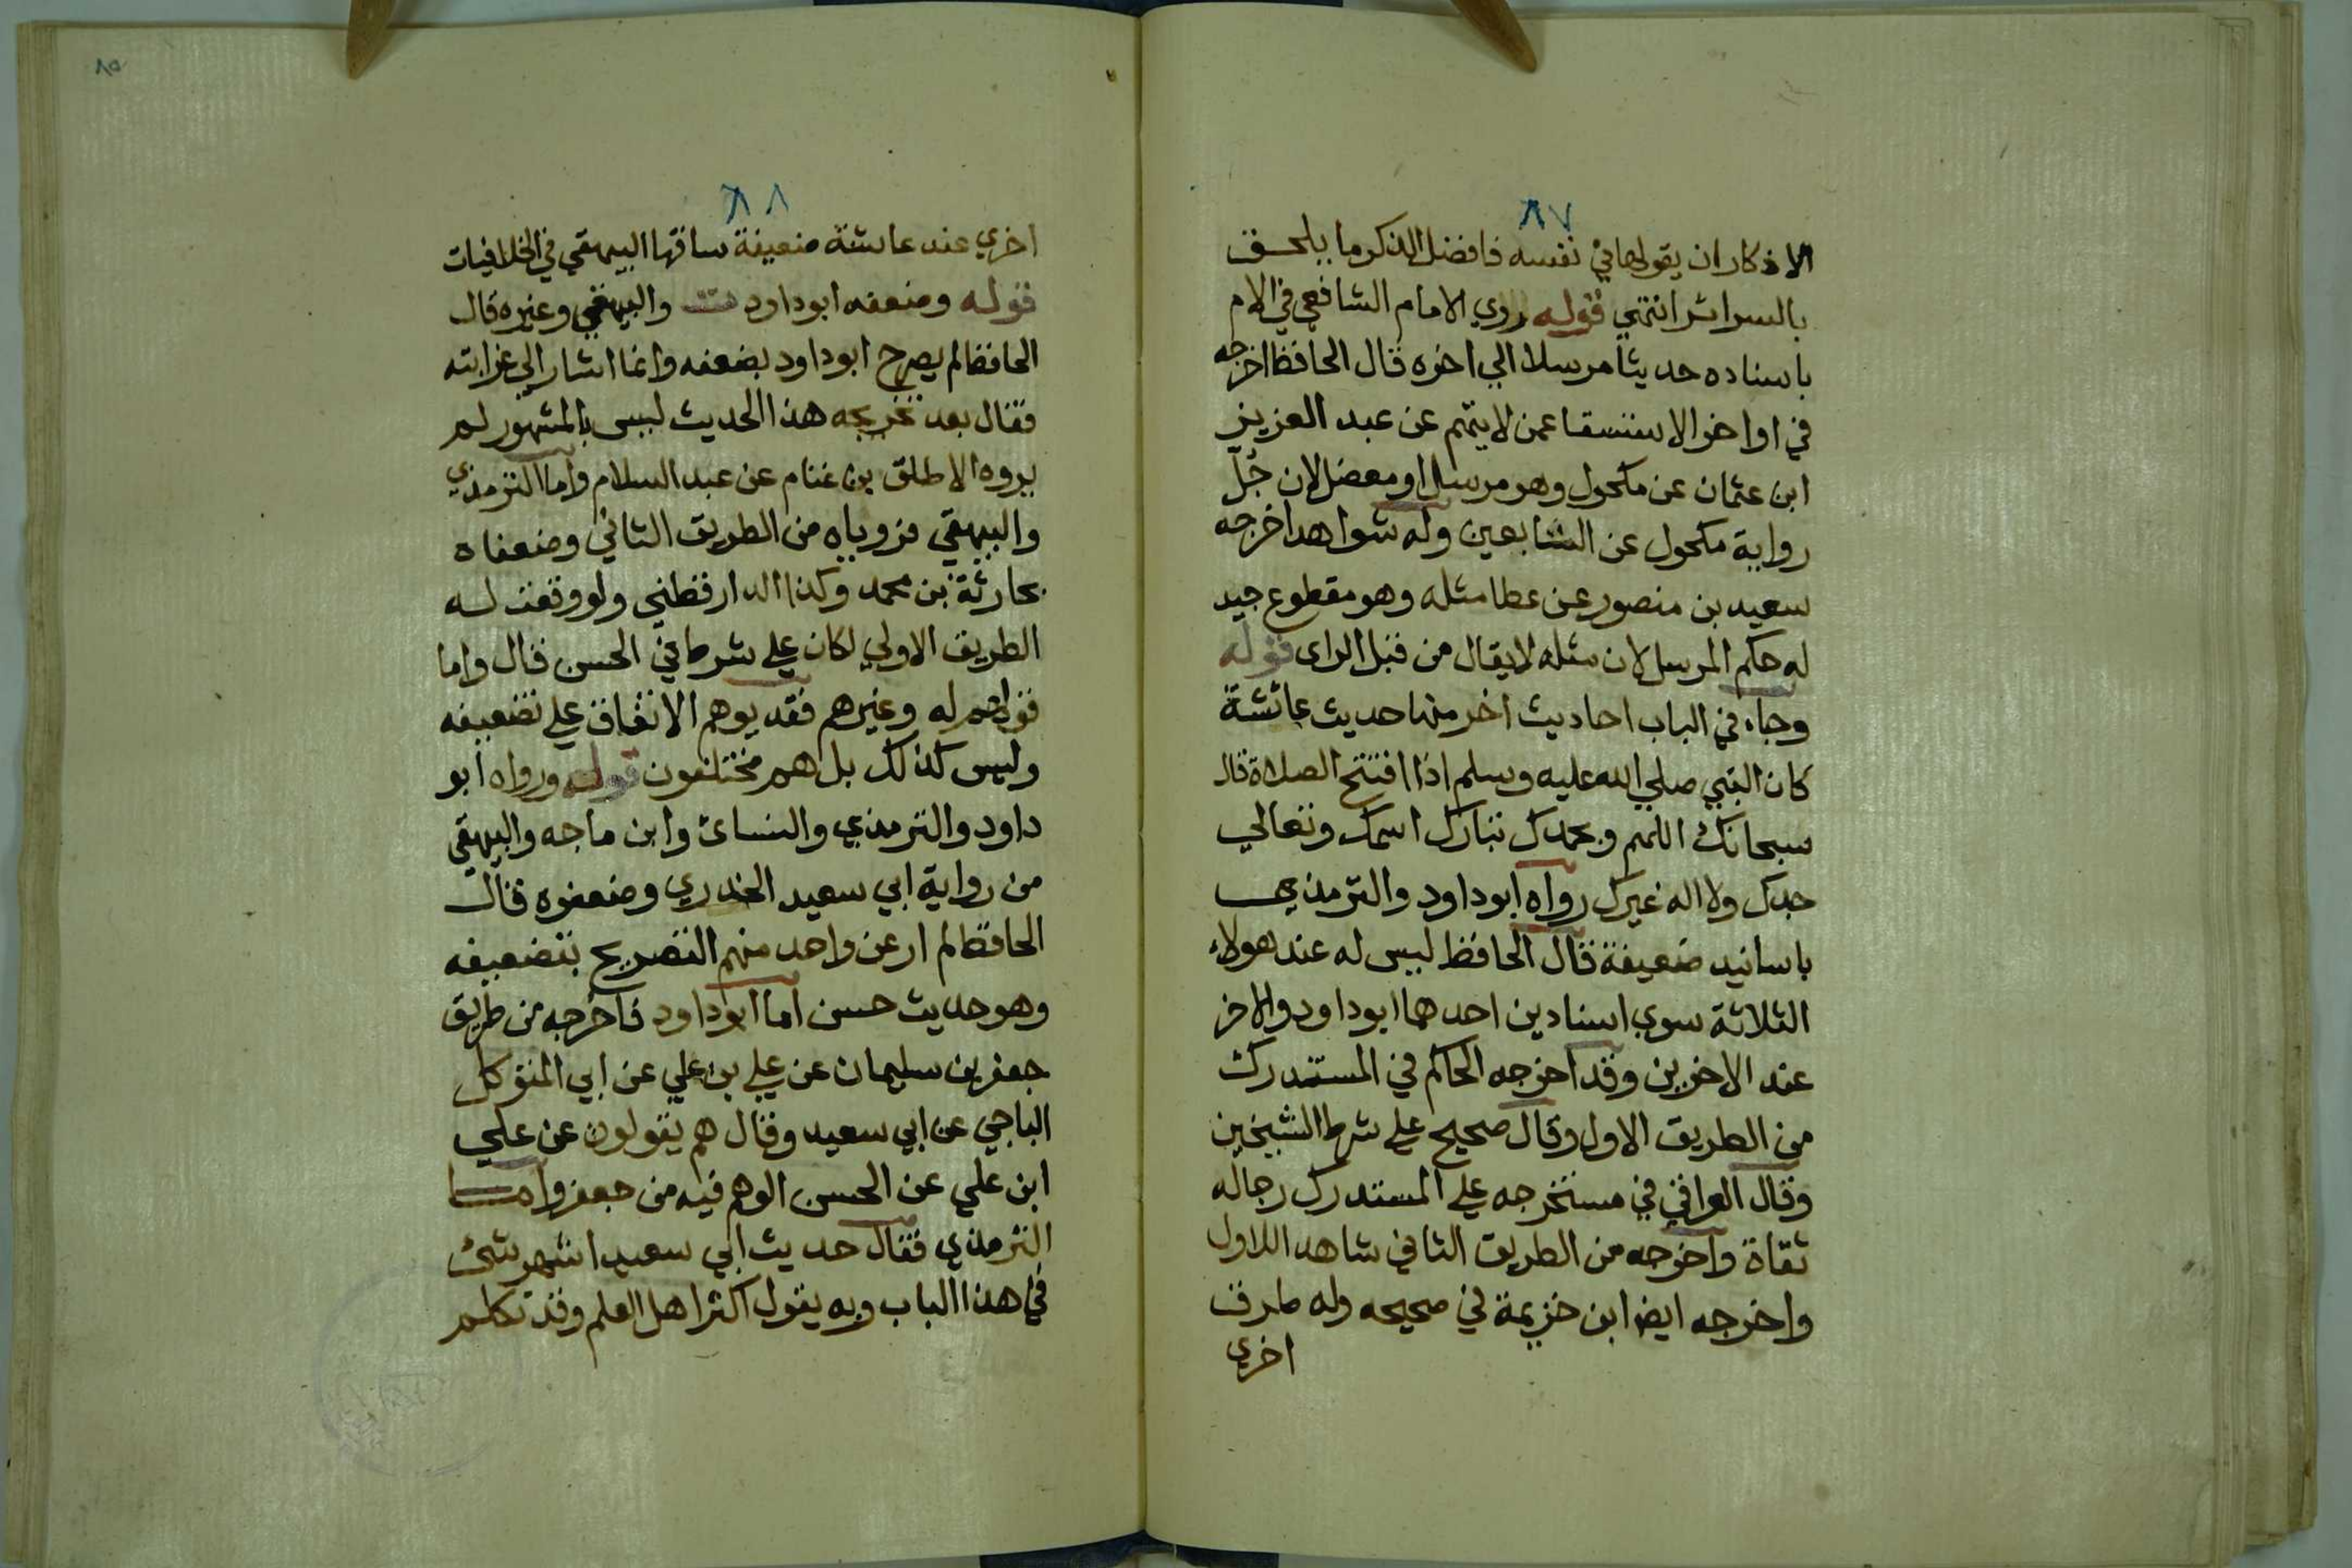 ٨٧
الاذكار ان يقولها في نفسه فافضل الذكر ما يلحق
بالسرائر انتهي قوله روي الامام الشافعي في الام
باسناده حديثا مرسلا الي اخره قال الحافظ اخرجه
في اواخر الاستسقا عمن لا يتهم عن عبد العزيز
ابن عثمان عن مكحول وهو مرسل او معضل لان جُلّ
رواية مكحول عن التابعين وله شواهد اخرجه
سعيد بن منصور عن عطا مثله وهو مقطوع جيد
له حكم المرسل لان مثله لا يقال من قبل الراى قوله
وجاء في الباب احاديث اخر منها حديث عائشة
كان النبي صلي الله عليه وسلم اذا افتتح الصلاة قال
سبحانك اللهم وبحمدك تبارك اسمك وتعالي
جدك ولا اله غيرك رواه ابو داود والترمذي
باسانيد ضعيفة قال الحافظ ليس له عند هولاء
الثلاثة سوي اسنادين احدهما ابو داود والاخر
عند الاخرين وقد اخرجه الحاكم في المستدرك
من الطريق الاول وقال صحيح علي شرط الشيخين
وقال العراقي في مستخرجه علي المستدرك رجاله
ثقاة واخرجه من الطريق الثاني شاهد اللاول
واخرجه ايضا ابن خزيمة في صحيحه وله طرق
اخري
٨٥
٨٨
اخري عند عايشة ضعيفة ساقها البيهقي في الخلافيات
قوله وضعفه ابو داود ت والبيهقي وغيره قال
الحافظ لم يصرح ابو داود بضعفه وانما اشار الي غرابته
فقال بعد تخريجه هذا الحديث ليس بالمشهور لم
يروه الا طلق بن غنام عن عبد السلام واما الترمذي
والبيهقي فروياه من الطريق الثاني وضعفاه
بحارثة بن محمد وكذا الدارقطني ولو وقعت له
الطريق الاولي لكان علي شرطه في الحسن قال واما
قولهم له وغيرهم فقد يوهم الاتفاق علي تضعيفه
وليس كذلك بل هم مختلفون قوله ورواه ابو
داود والترمذي والنسائ وابن ماجه والبيهقي
من رواية ابي سعيد الخدري وضعفوه قال
الحافظ لم ار عن واحد منهم التصريح بتضعيفه
وهو حديث حسن اما ابو داود فاخرجه من طريق
جعفر بن سليمان عن علي بن علي عن ابي المتوكل
الباجي عن ابي سعيد وقال هم يقولون عن علي
ابن علي عن الحسن الوهم فيه من جعفر واما
الترمذي فقال حديث ابي سعيد اشهر شئ
في هذا الباب وبه يقول اكثر اهل العلم وقد تكلم